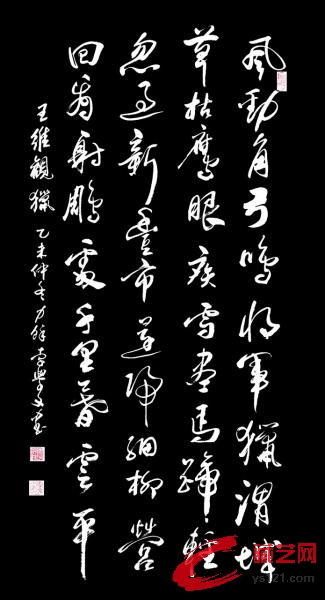 風勁角弓鳴將軍獵渭城
草枯鷹眼疾雪盡馬蹄輕
忽過新豐市還歸細柳營
回看射雕處千里暮雲平
王維觀獵 乙未仲冬 書
演艺网
ys121.com